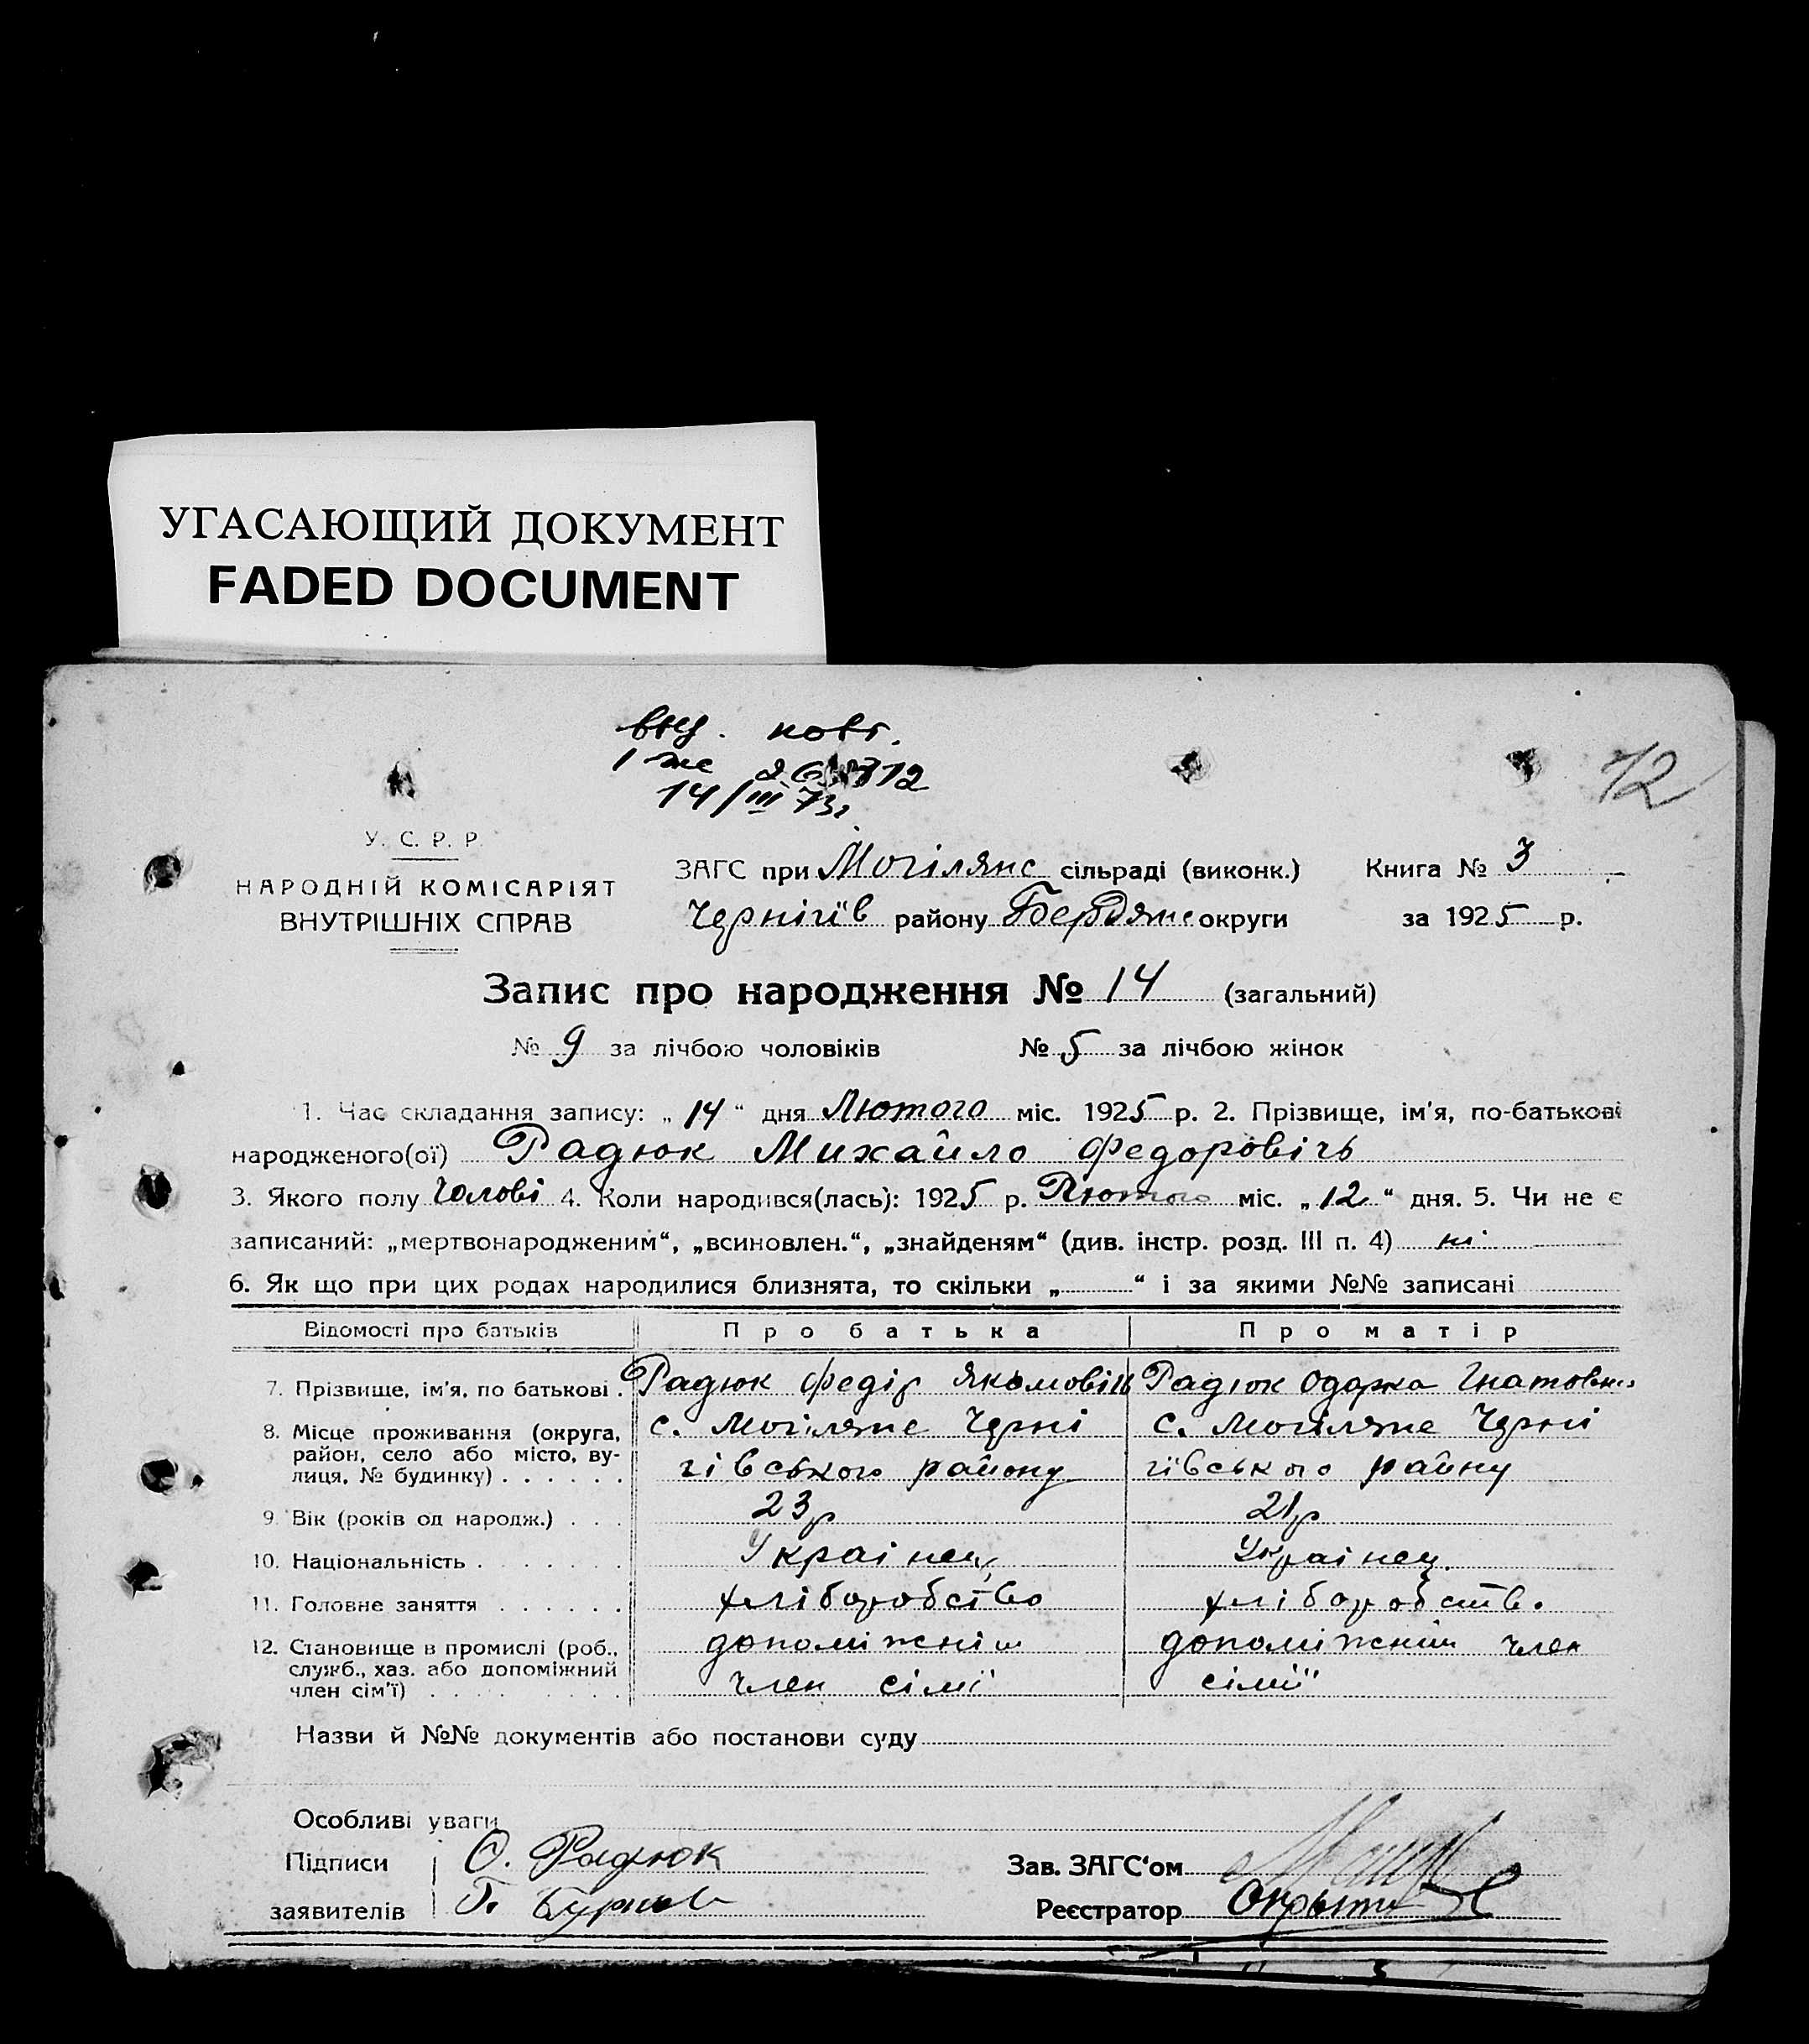 УГАСАЮЩИЙ ДОКУМЕНТ
FADED DOCUMENT
вид. повт.
14/III 73г
72
У. С. Р. Р.
НАРОДНІЙ КОМІСАРІЯТ
ВНУТРІШНІХ СПРАВ
ЗАГС при Могілянс сільраді (виконк.) Книга № 3
Чернігів району Бердянс округи за 1925 р.
Запис про народження № 14 (загальний)
№ 9 за лічбою чоловіків № 5 за лічбою жінок
1. Час складання запису: „14“ дня Лютого міс. 1925 р. 2. Прізвище, ім'я, по-батькові
народженого(ої) Радюк Михайло Федоровічь
3. Якого полу Чолові 4. Коли народився(лась): 1925 р. Лютого міс. „12“ дня. 5. Чи не є
записаний: „мертвонародженим“, „всиновлен.“, „знайденям“ (див. інстр. розд. III п. 4) ні
6. Як що при цих родах народилися близнята, то скільки „ “ і за якими №№ записані
Відомості про батьків Про батька Про матір
7. Прізвище, ім'я, по батькові . Радюк Федір Якомовічь Радюк Одарка Гнатовн
8. Місце проживання (округа, с. Могіляне Черні с. Могіляне Черні
район, село або місто, ву-
лиця, № будинку) . . . . . . гівського району гівського району
9. Вік (років од народж.) . . . 23р 21р
10. Національність . . . . . . . Украінец Украінец.
11. Головне заняття . . . . . . хліборобство хліборобство
12. Становище в промислі (роб., допоміжніш допоміжніш член
служб., хаз. або допоміжний
член сім'ї) . . . . . . . . . член сімї сімії
Назви й №№ документів або постанови суду
Особливі уваги
Підписи О. Радюк Зав. ЗАГС'ом
заявителів Реєстратор